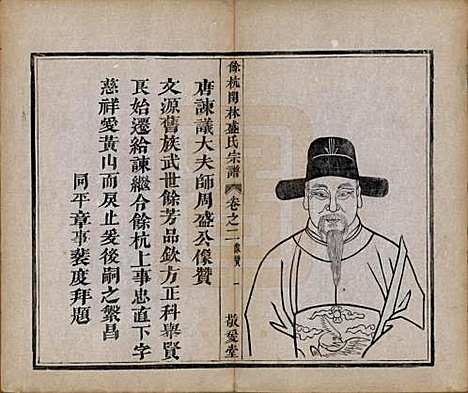 餘杭閑林盛氏宗譜 卷之二 像贊 一 敬愛堂
唐諫議大夫師周盛公像贊
文源舊族武世餘芳品欽方正科舉賢
良始遷給諫繼令餘杭上事忠直下字
慈祥愛黃山而戾止爰後嗣之繁昌
同平章事裴度拜題